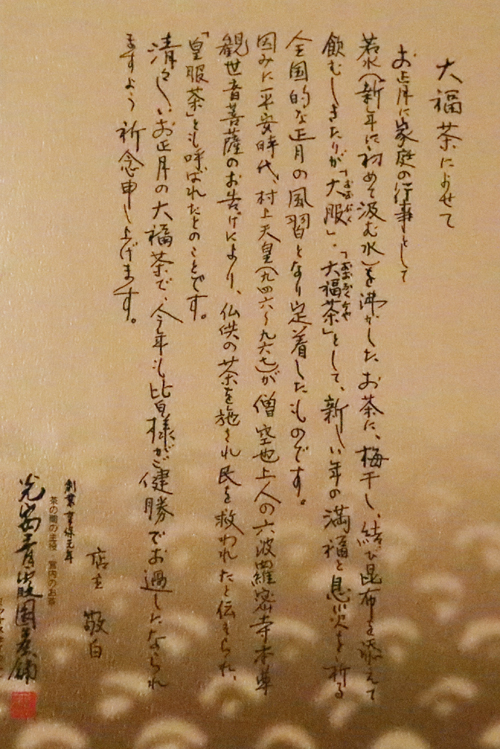 大福茶によせて
お正月に家庭の行事として
若水(新年に初めて汲む水)を沸かしたお茶に、梅干し、結び昆布を添えて
飲むしきたりが「大服」・「大福茶」として、新しい年の満福と息災を祈る
全国的な正月の風習となり定着したものです。
因みに平安時代、村上天皇(九四六〜九六七)が僧空也上人の六波羅密寺本尊
観世音菩薩のお告げにより、仏供の茶を施され民を救われたと伝えられ、
「皇服茶」とも呼ばれたとのことです。
清々しいお正月の大福茶で、今年も皆様がご健勝でお過しになられ
ますよう祈念申し上げます。
店主 敬白
創業享保元年
茶の間の主役 宮内のお茶
光安青霞園茶舗